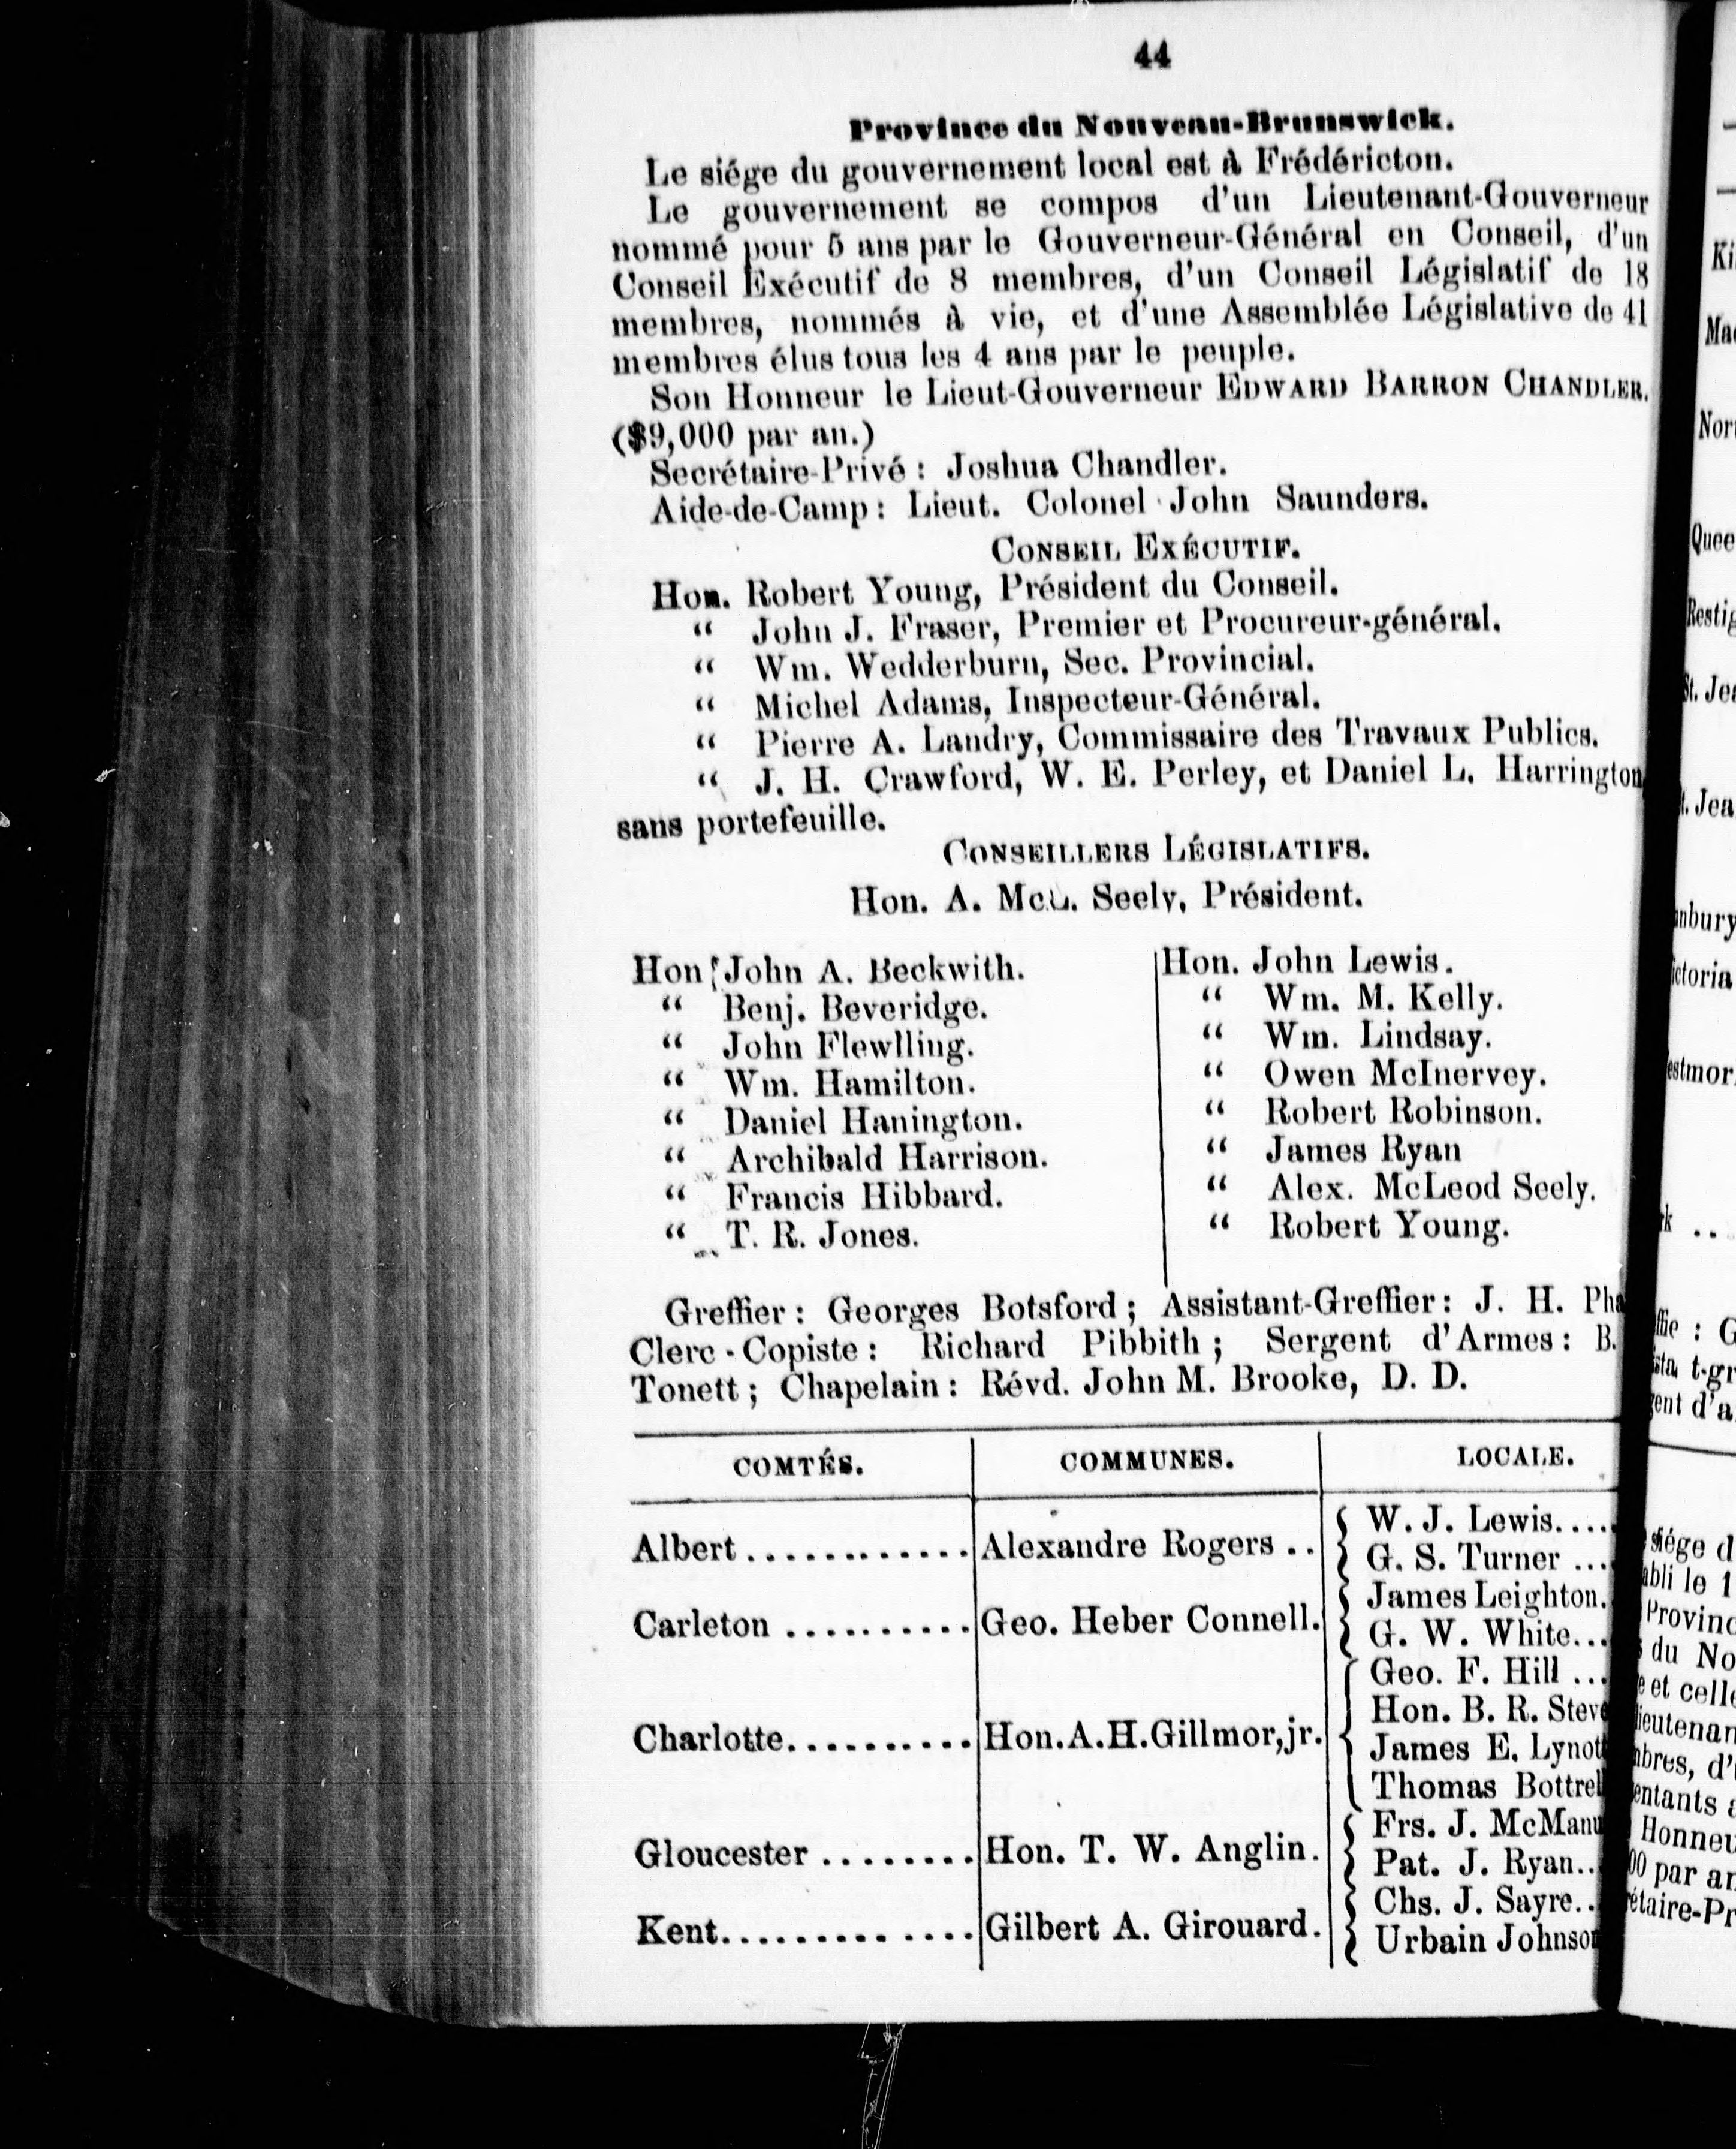 44
Province du Nouveau-Brunswick.
Le siége du gouvernement local est à Frédéricton.
Le gouvernement se compos d'un Lieutenant-Gouverneur
nommé pour 5 ans par le Gouverneur-Général en Conseil, d'un
Conseil Exécutif de 8 membres, d'un Conseil Législatif de 18
membres, nommés à vie, et d'une Assemblée Législative de 41
membres élus tous les 4 ans par le peuple.
Son Honneur le Lieut-Gouverneur EDWARD BARRON CHANDLER.
($9,000 par an.)
Secrétaire-Privé : Joshua Chandler.
Aide-de-Camp : Lieut. Colonel John Saunders.
CONSEIL EXÉCUTIF.
Hon. Robert Young, Président du Conseil.
“ John J. Fraser, Premier et Procureur-général.
“ Wm. Wedderburn, Sec. Provincial.
“ Michel Adams, Inspecteur-Général.
“ Pierre A. Landry, Commissaire des Travaux Publics.
“ J. H. Crawford, W. E. Perley, et Daniel L. Harrington
sans portefeuille.
CONSEILLERS LÉGISLATIFS.
Hon. A. McL. Seely, Président.
Hon John A. Beckwith.
“ Benj. Beveridge.
“ John Flewlling.
“ Wm. Hamilton.
“ Daniel Hanington.
“ Archibald Harrison.
“ Francis Hibbard.
“ T. R. Jones.
Hon. John Lewis.
“ Wm. M. Kelly.
“ Wm. Lindsay.
“ Owen McInervey.
“ Robert Robinson.
“ James Ryan
“ Alex. McLeod Seely.
“ Robert Young.
Greffier : Georges Botsford ; Assistant-Greffier : J. H. Pha
Clerc-Copiste : Richard Pibbith ; Sergent d'Armes : B.
Tonett ; Chapelain : Révd. John M. Brooke, D. D.
COMTÉS. COMMUNES. LOCALE.
Albert............ Alexandre Rogers ..
W. J. Lewis....
G. S. Turner ...
Carleton .......... Geo. Heber Connell.
James Leighton.
G. W. White...
Charlotte.......... Hon.A.H.Gillmor,jr.
Geo. F. Hill ...
Hon. B. R. Steve
James E. Lynott
Thomas Bottrel
Gloucester ........ Hon. T. W. Anglin.
Frs. J. McManu
Pat. J. Ryan..
Kent.............. Gilbert A. Girouard.
Chs. J. Sayre..
Urbain Johnson